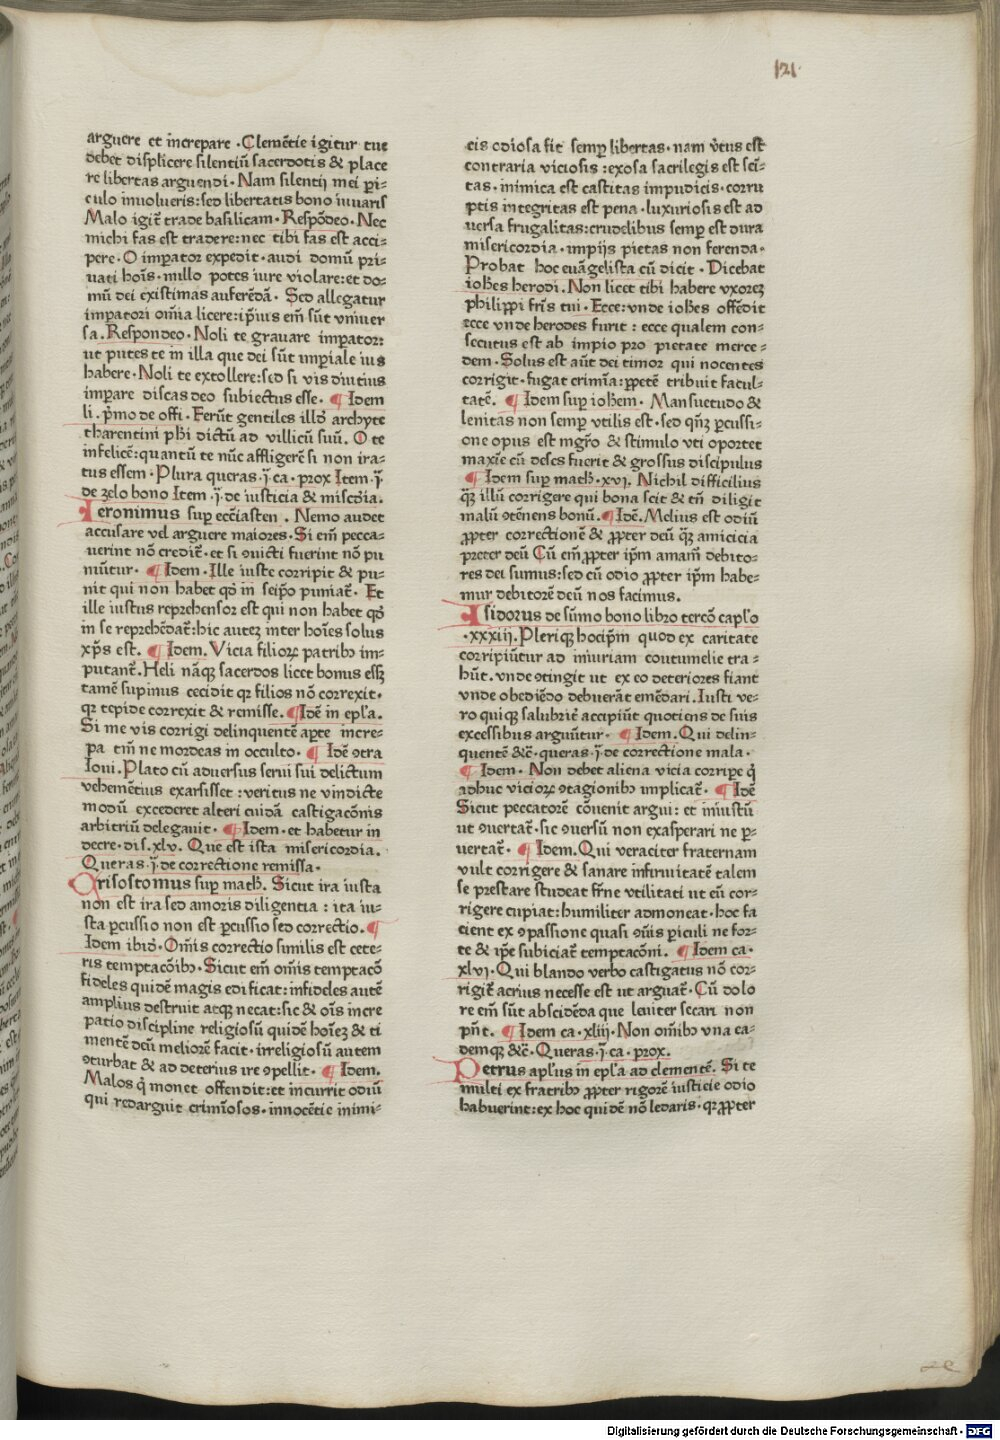 121
arguere et increpare · Clemētie igitur tue
debet displicere silentiū sacerdotis & place
re libertas arguendi · Nam silentij mei ꝑi-
culo inuolueris: sed libertatis bono iuuaris
Malo igit̄ trade basilicam · Respōdeo · Nec
michi fas est tradere: nec tibi fas est acci-
pere · O imꝑator expedit · audi domū pri-
uati hoīs · nullo potes iure violare: et do-
mū dei existimas auferēdā · Sed allegatur
imꝑatori om̄ia licere: ip̄ius em̄ sūt vniuer
sa. Respondeo · Noli te grauare imꝑator:
ut putes te in illa que dei sūt imꝑiale ius
habere · Noli te extollere: sed si vis diutius
imꝑare discas deo subiectus esse · ¶ Idem
li. p̄mo de offi · Ferūt gentiles illd̄ archyte
tharentini ph̄i dictū ad villicū suū. O te
infelicē: quantū te nūc affligerē si non ira-
tus essem · Plura queras · ī · ca · prox Item · ī
de zelo bono Item · ī · de iusticia & misc̄dia.
Ieronimus suꝑ ecc̄iasten . Nemo audet
accusare vel arguere maiores · Si em̄ pecca-
uerint nō credit̄ · et si ꝯuicti fuerint nō pu
niūtur · ¶ Idem · Ille iuste corripit & pu-
nit qui non habet qd̄ in seip̄o puniat̄ · Et
ille iustus reprehensor est qui non habet qd̄
in se reprehēdat̄: hic autez inter hoīes solus
xp̄s est. ¶ Idem. Vicia filioꝝ patribꝰ im-
putant̄. Heli nāqꝫ sacerdos licet bonus essꝫ
tamē supinus cecidit qꝛ filios nō correxit ·
qꝛ tepide correxit & remisse. ¶ Idē in ep̄l'a.
Si me vis corrigi delinquentē aꝑte incre-
pa tm̄ ne mordeas in occulto · ¶ Idē ꝯtra
Ioui. Plato cū aduersus serui sui delictum
vehemētius exarsisset : veritus ne vindicte
modū excederet alteri cuidā castigacōnis
arbitriū delegauit · ¶ Idem · et habetur in
decre · dis. xlv. Que est ista misericordia.
Queras · ī · de correctione remissa ·
Crisostomus suꝑ math̄. Sicut ira iusta
non est ira sed amoris diligentia : ita iu-
sta ꝑcussio non est ꝑcussio sed correctio. ¶
Idem ibid̄ · Om̄is correctio similis est cete-
ris temptacōibꝰ · Sicut em̄ om̄is temptacō
fideles quidē magis edificat: infideles autē
amplius destruit atqꝫ necat: sic & oīs incre
patio discipline religiosū quidē hoīez & ti
mentē deū meliorē facit · irreligiosū autem
ꝯturbat & ad deterius ire ꝯpellit · ¶ Idem.
Malos q̇ monet offendit: et incurrit odiū
qui redarguit crimīosos · innocētie inimi-
cis odiosa fit semꝑ libertas · nam v̄tus est
contraria viciosis : exosa sacrilegis est scī-
tas · inimica est castitas impudicis · corru
ptis integritas est pena · luxuriosis est ad
uersa frugalitas: crudelibus semꝑ est dura
misericordia · impijs pietas non ferenda ·
Probat hoc euāgelista cū dicit · Dicebat
ioh̄es herodi. Non licet tibi habere vxorez
philippi fr̄is tui · Ecce: vnde ioh̄es offēdit
ecce vnde herodes furit : ecce qualem con-
secutus est ab impio pro pietate merce-
dem · Solus est aūt dei timor qui nocentes
corrigit · fugat crimīa: ꝓpetē tribuit facul-
tatē. ¶ Idem suꝑ ioh̄em · Mansuetudo &
lenitas non semꝑ vtilis est · sed qn̄ꝫ ꝑcussi-
one opus est mgr̄o & stimulo vti oportet
maxīe cū deses fuerit & grossus discipulus
¶ Idem suꝑ math̄ · xvj. Nichil difficilius
qꝫ illū corrigere qui bona scit & tn̄ diligit
malū ꝯtēnens bonū. ¶ Idē. Melius est odiū
ꝓpter correctionē & ꝓpter deū qꝫ amicicia
preter deū Cū em̄ ꝓpter ip̄m amam̄ debito-
res dei sumus: sed cū odio ꝓpter ip̄m habe-
mur debitorē deū nos facimus.
Isidorus de sūmo bono libro tercō capl'o
· xxxiij. Pleriqꝫ hocip̄m quod ex caritate
corripiūtur ad iniuriam contumelie tra-
hūt. vnde ꝯtingit ut ex eo deteriores fiant
vnde obediēdo debuerāt emēdari. Iusti ve-
ro quiqꝫ salubrit̄ accipiūt quotiens de suis
excessibus arguūtur · ¶ Idem. Qui delin-
quentē &c̄ · queras · ī · de correctione mala ·
¶ Idem · Non debet aliena vicia corriꝑe q̇
adhuc vicioꝝ ꝯtagionibꝰ implicat̄ · ¶ Idē
Sicut peccatorē cōuenit argui: et iniustū
ut ꝯuertat̄ · sic ꝯuersū non exasperari ne ꝑ-
uertat̄ · ¶ Idem. Qui veraciter fraternam
vult corrigere & sanare infirmitatē talem
se prestare studeat fr̄ne vtilitati ut eū cor-
rigere cupiat: humiliter admoneat · hoc fa
cient ex ꝯpassione quasi ꝯ̄is periculi ne for-
te & ip̄e subiciat̄ temptacōni. ¶ Idem ca ·
xlvj · Qui blando verbo castigatus nō cor-
rigit̄ acrius necesse est ut arguat̄ · Cū dolo
re em̄ sūt abscidēda que leuiter secari non
pn̄t. ¶ Idem ca · xliij · Non om̄ibꝰ vna ea-
demqꝫ &c̄ · Queras · ī · ca · prox.
Petrus apl'us in ep̄l'a ad clementē. Si te
multi ex fratribꝰ ꝓpter rigorē iusticie odio
habuerint: ex hoc quidē nō ledaris · qꝛ ꝓpter
Digitalisierung gefördert durch die Deutsche Forschungsgemeinschaft - DFG